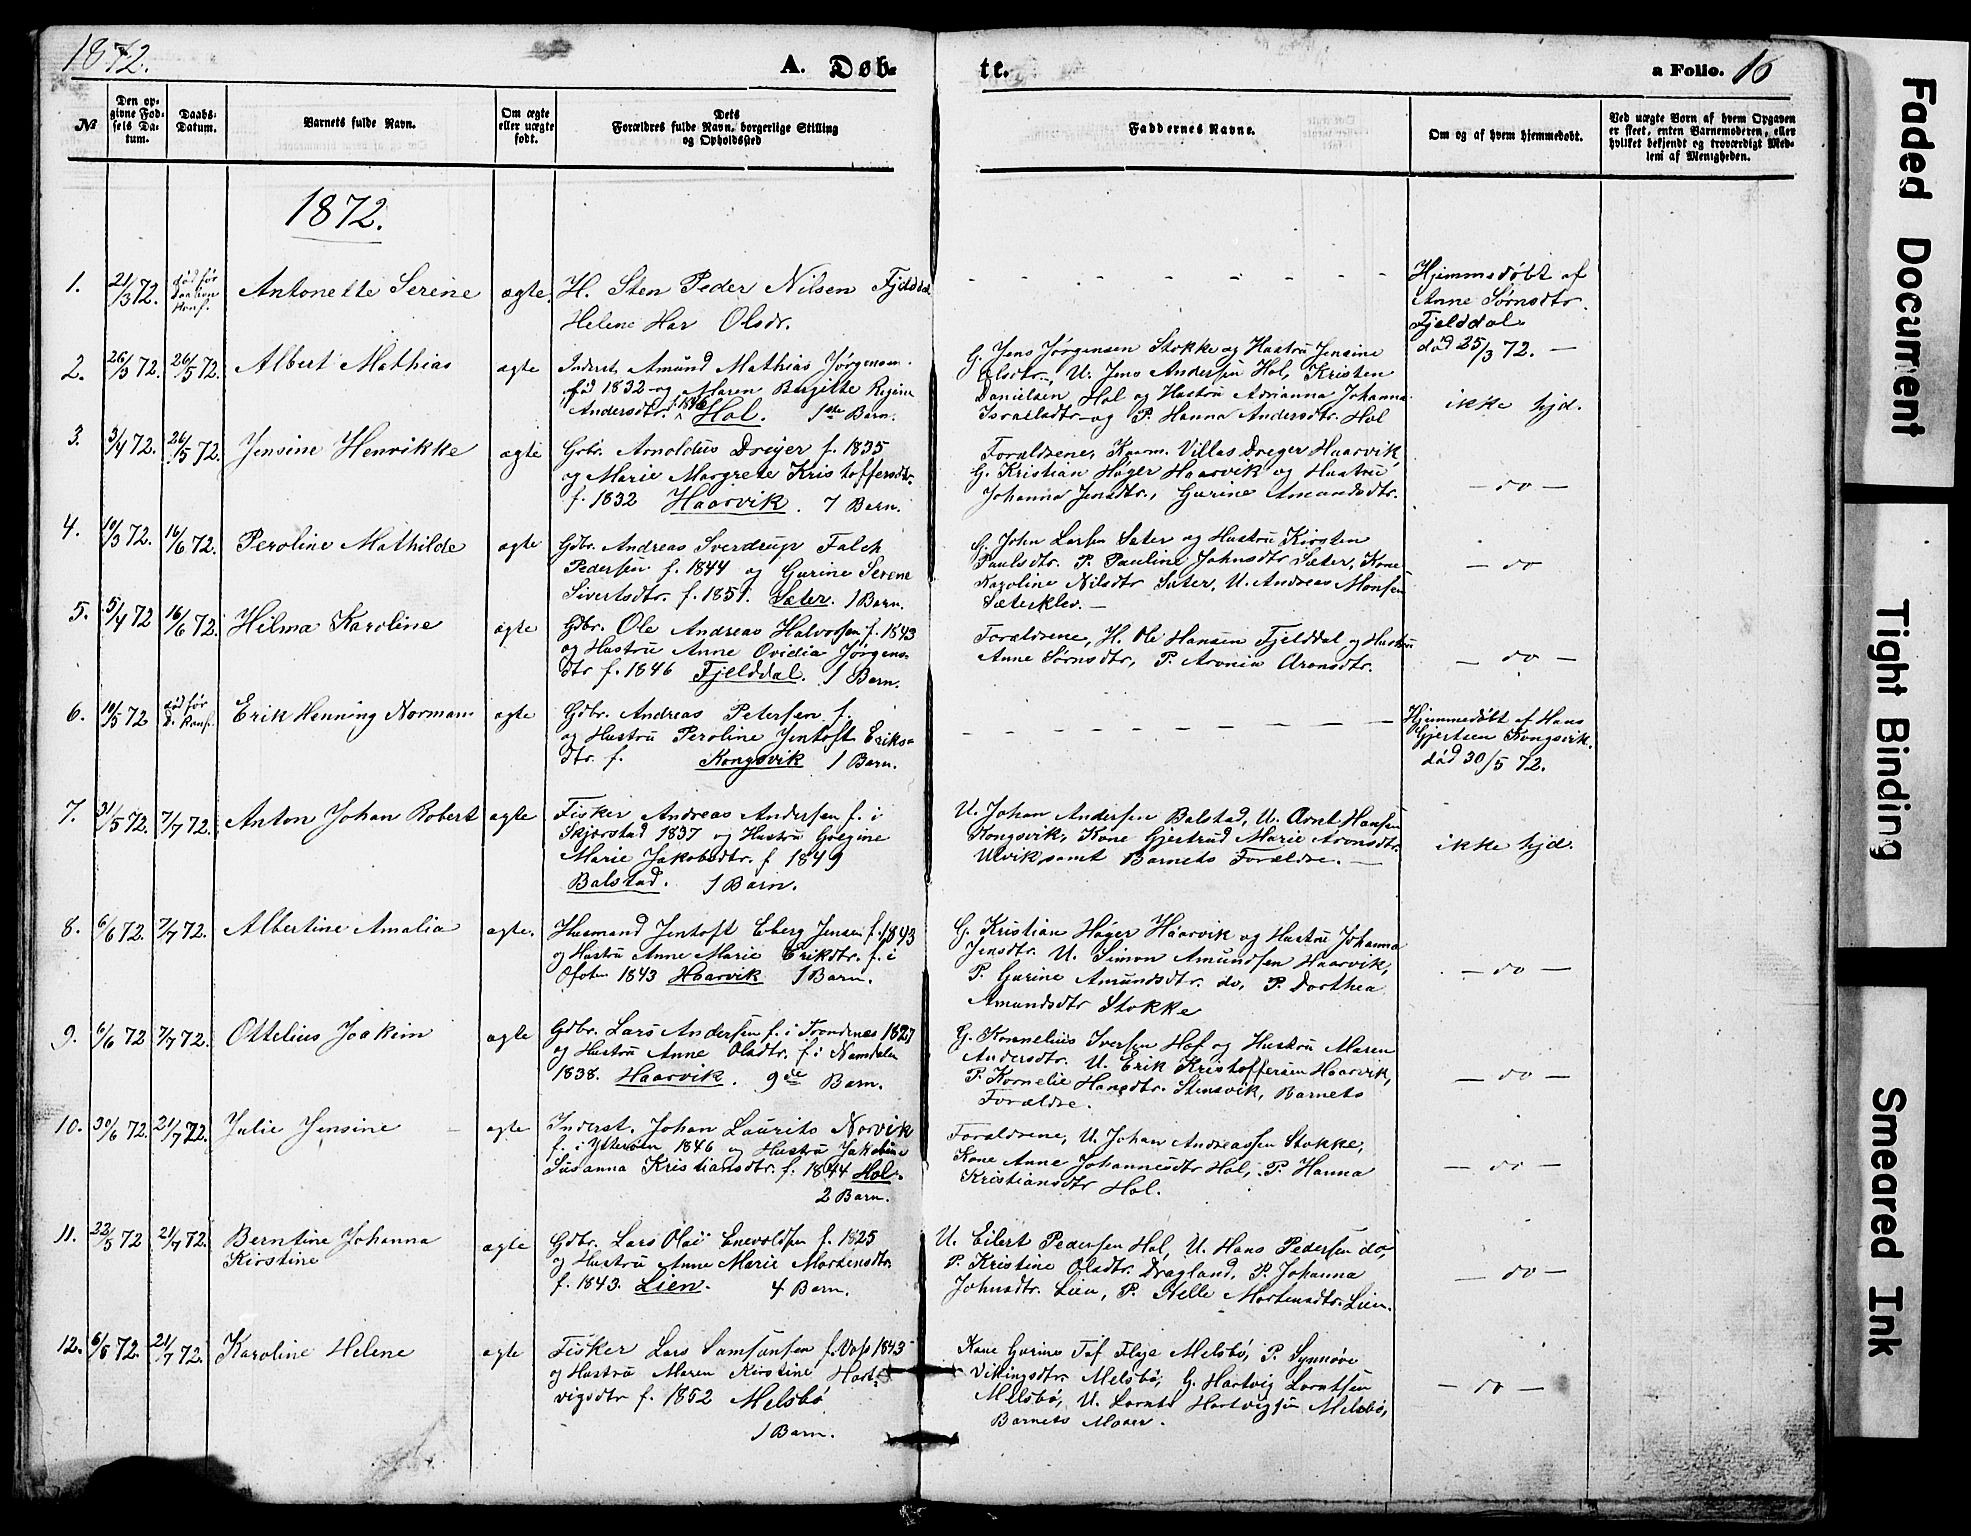 1872.
A. Døb-
te.
a Folio. 16
№
Den op-
givne Fød-
sels Da-
tum.
Daabs-
Datum.
Barnets fulde Navn.
Om ægte
eller uægte
født.
Dets
Forældres fulde Navn, borgerlige Stilling
og Opholdssted
Faddernes Navne.
Om og af hvem hjemmedøbt.
Ved uægte Børn af hvem Opgaven
er skeet, enten Barnemoderen, eller
hvilket bekjendt og troværdigt Med-
lem af Menigheden.
1872.
1. 21/3 72.
død før
Daaben
Konf.
Antonette Serine
ægte.
H. Sten Peder Nilsen Fjelddal
Helene Har Olsdr.
Hjemmedøbt af
Anne Sørnsdtr
Fjelddal
død 25/3 72. —
2. 26/3 72. 26/5 72. Albert Mathias
ægte
Inderst Amund Mathias Jørgensen
fød 1832 og Maren Birgitte Regine
Andersdtr. f. 1846 Hol. 1ste Barn.
G. Jens Jørgensen Stokke og Hustru Jensine
Olsdtr., U. Jens Andersen Hol, Kristen
Danielsen Hol og Hustru Adrianna Johanna
Israelsdtr og P. Hanna Andersdtr. Hol
ikke hjd.
3. 3/4 72. 26/5 72. Jensine Henrikke
ægte
Gbr. Arnoldus Dreyer f. 1835
og Marie Margrete Kristoffersdtr.
f. 1832 Haarvik. 7 Barn.
Forældrene, Kaarm. Villas Dreyer Haarvik
G. Kristian Høyer Haarvik og Hustru
Johanna Jensdtr., Gurine Amundsdtr.
— do —
4. 10/3 72. 16/6 72. Peroline Mathilde
ægte
Gdbr. Andreas Sverdrup Falch
Pedersen f. 1844 og Gurine Serene
Sivertsdtr. f. 1851. Sæter. 1 Barn.
G. John Larsen Sæter og Hustru Kirsten
Paulsdtr. P. Pauline Johnsdtr Sæter, Kone
Karoline Nilsdtr Sæter, U. Andreas Monsen
Sæterklev. —
— do
5. 5/4 72 16/6 72. Hilma Karoline
ægte
Gdbr. Ole Andreas Halvorsen f. 1843
og Hustru Anne Ovidia Jørgens-
dtr f. 1846 Fjelddal. 1 Barn.
Forældrene, H. Ole Hansen Fjelddal og Hustru
Anne Sørnsdtr, P. Aronia Aronsdtr.
— do —
6. 10/5 72
død før
D. Konf.
Erik Henning Normann
ægte
Gdbr. Andreas Petersen f.
og Hustru Peroline Jentoft Eriks-
dtr. f. Kongsvik 1 Barn.
Hjemmedøbt af Hans
Gjertsen Kongsvik.
død 30/5 72.
7. 31/5 72. 7/7 72. Anton Johan Robert
ægte
Fisker Andreas Andersen f. i
Skjerstad 1837 og Hustru Golgine
Marie Jakobsdtr. f 1849
Balstad. 1 Barn.
U. Johan Andersen Balstad, U. Arnt Hansen
Kongsvik, Kone Gjertrud Marie Aronsdtr.
Ulvik samt Barnets Forældre. —
ikke hjd.
8. 6/6 72. 7/7 72. Albertine Amalia
ægte.
Husmand Jentoft Eberg Jensen f. 1843
og Hustru Anne Marie Erikdtr. f. i
Ofoten 1843 Haarvik 1 Barn.
G. Kristian Høyer Haarvik og Hustru Johanna
Jensdtr. U. Simon Amundsen Haarvik,
P. Gurine Amundsdtr. do, P. Dorthea
Amundsdtr Stokke
— do —
9. 6/6 72 7/7 72. Ottelius Joakim
ægte
Gdbr. Lars Andersen f. i Trondenes 1827
og Hustru Anne Olsdtr. f. i Namdalen
1838. Haarvik. 9de Barn.
G. Kornelius Iversen Hof og Hustru Maren
Andersdtr. U. Erik Kristoffersen Haarvik,
P. Kornelie Hansdtr. Stensvik, Barnets
Forældre.
— do —
10. 30/6 72. 21/7 72. Julie Jensine
ægte
Inderst. Johan Laurits Norvik
f. i Ytterøen 1846 og Hustru Jakobine
Susanna Kristiansdtr. f. 1844 Hol.
2 Barn.
Forældrene, U. Johan Andreassen Stokke,
Kone Anne Johannesdtr Hol, P. Hanna
Kristiansdtr Hol.
— do —
11. 22/5 72 21/7 72. Berntine Johanna
Kirstine
ægte
Gdbr. Lars Olai Enevoldsen f. 1825
og Hustru Anne Marie Mortensdtr.
f. 1843. Lien. 4 Barn.
U. Eilert Pedersen Hol, U. Hans Pedersen do,
P. Kristine Olsdtr. Dragland, P. Johanna
Johnsdtr. Lien, P. Helle Mortensdtr. Lien.
— do —
12. 6/6 72. 21/7 72. Karoline Helene
ægte
Fisker Lars Samsonsen f. Vøss 1843
og Hustru Maren Kirstine Hart-
vigsdtr f. 1852 Melsbø
1 Barn.
Kone Gurine Melsbø, P. Synnøve
Vikingsdtr. Melsbø, G. Hartvig Lorntsen
Melsbø, U. Lornts Hartvigsen Melsbø,
Barnets Moder.
— do —
Faded Document
Tight Binding
Smeared Ink